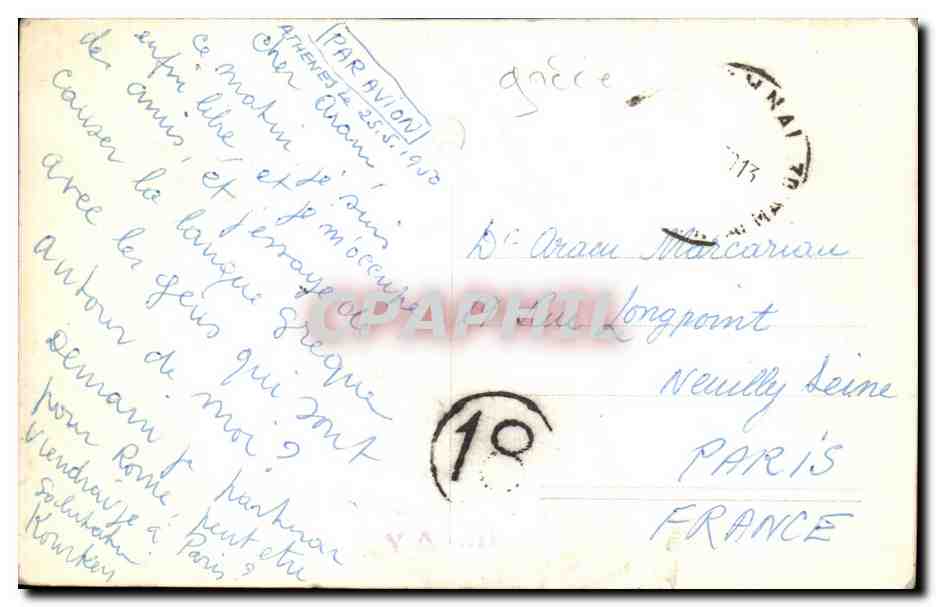 PAR AVION
ATHENES le 25.5.1960
Cher Aram,
ce matin je suis
enfin libéré, et je m'occupe
des amis, et j'essaye de
causer la langue greque
avec les gens qui sont
autour de moi?
Demain je partirai
pour Rome, peut etre
viendrai-je à Paris?
Salutation
Kourken
grèce
UNAI
13
Dr Aram Marcarian
Rue Longpoint
Neuilly Seine
PARIS
FRANCE
10
CPAPHIL